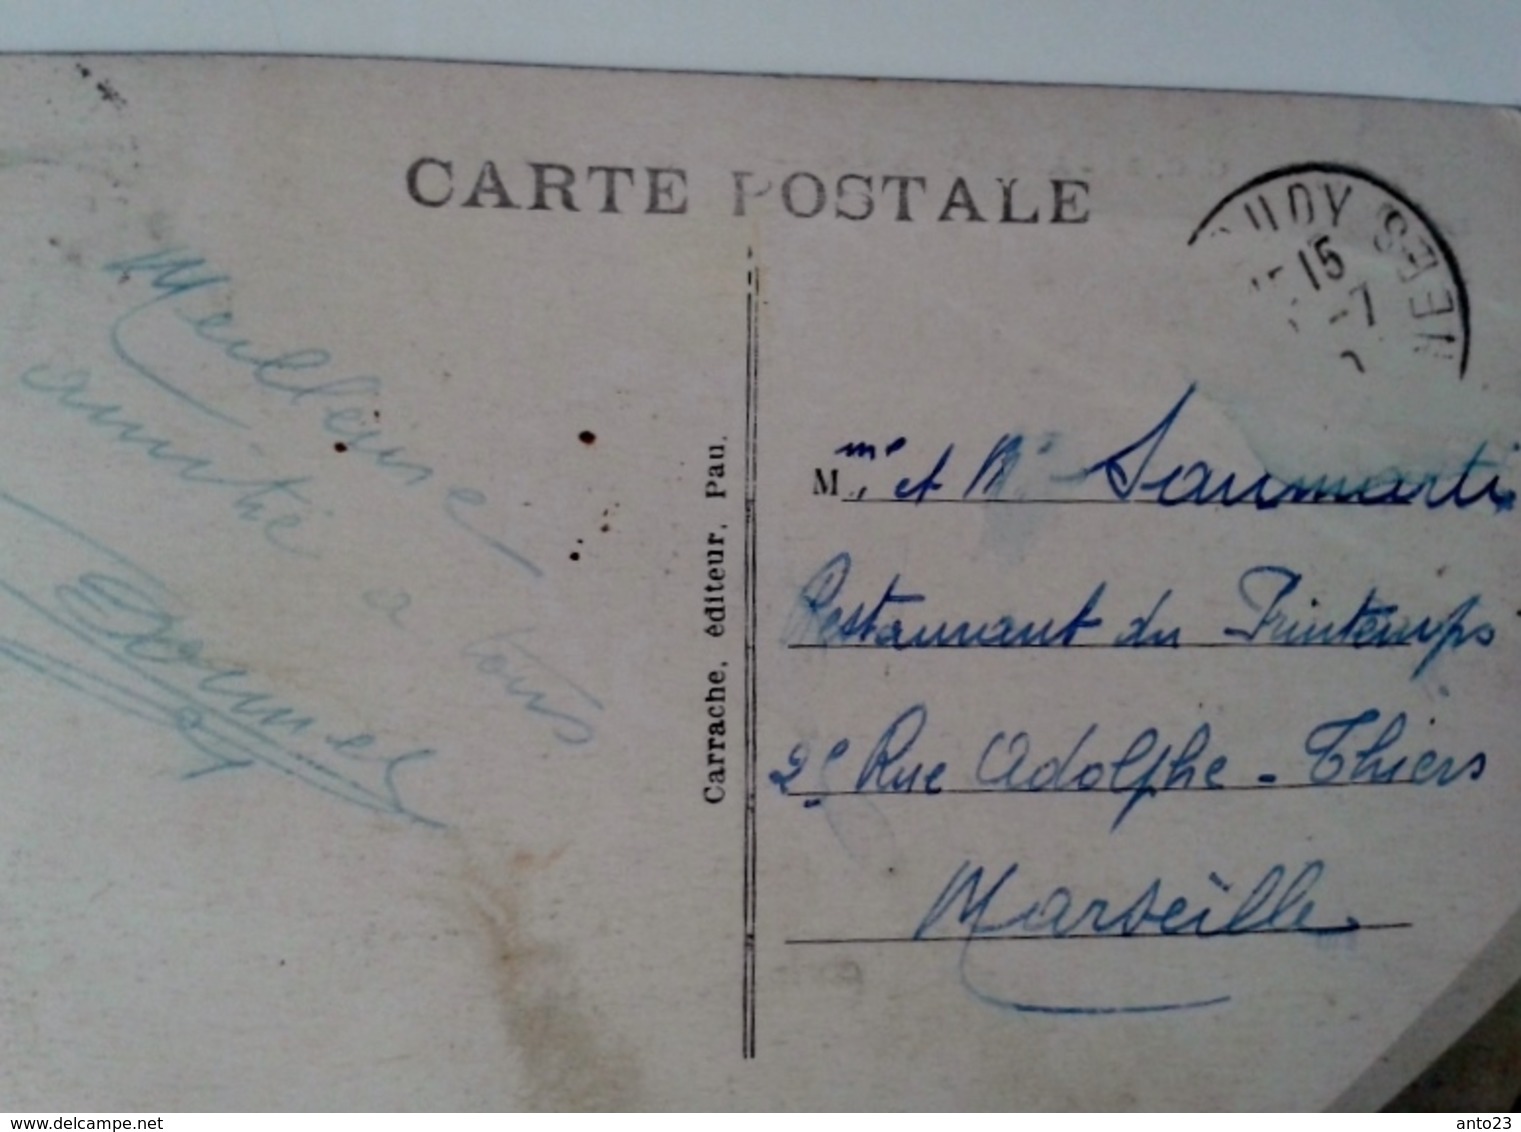 CARTE POSTALE
15
-7
Meilleure
amitié
a tous
Carrache, éditeur, Pau.
Mme et Mr Saumarti
Restaurant du Printemps
2e Rue Adolphe - Thiers
Marseille
delcampe.net
anto23